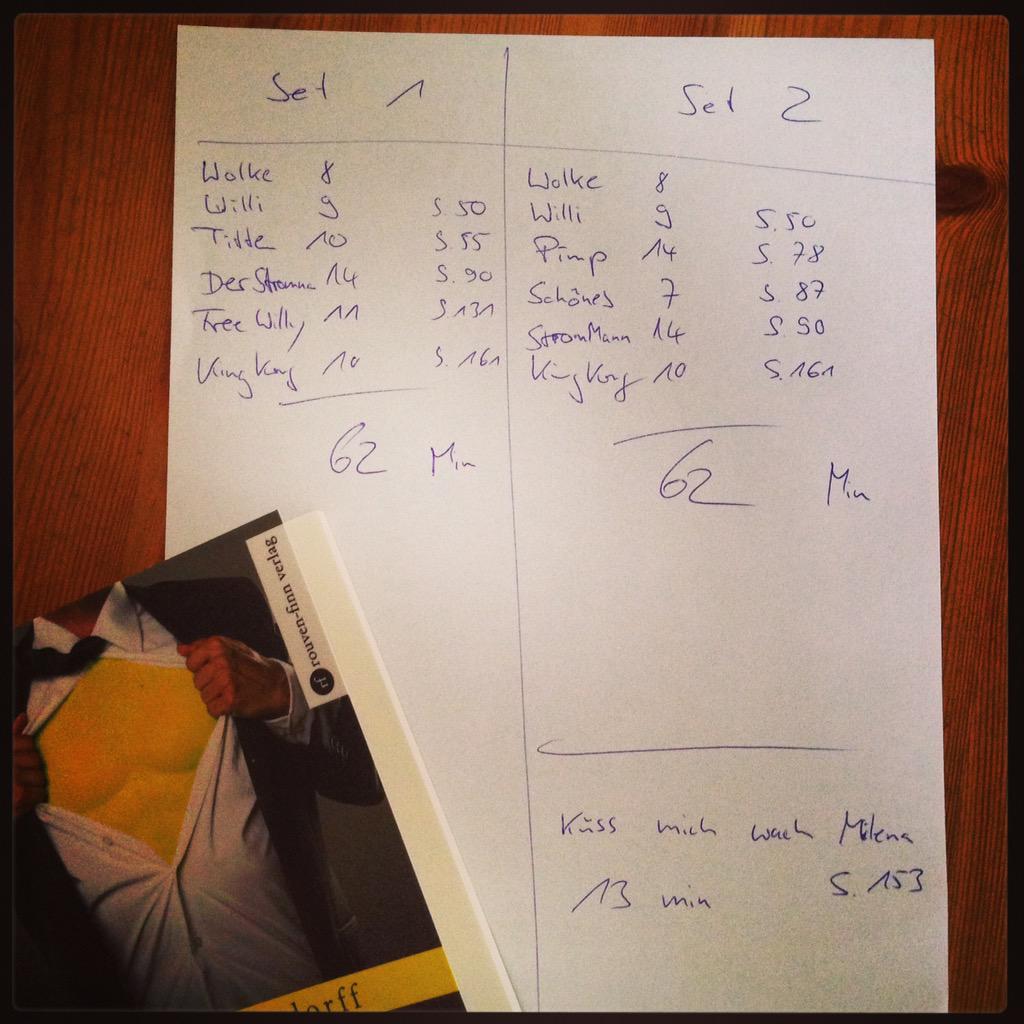 Set 1
Wolke 8
Willi 9 S. 50
Titte 10 S. 55
Der Stromma 14 S. 90
Free Willy 11 S. 131
King Kong 10 S. 161
62 Min
Set 2
Wolke 8
Willi 9 S. 50
Pimp 14 S. 78
Schönes 7 S. 87
StromMann 14 S. 90
King Kong 10 S. 161
62 Min
Küss mich wach Milena
13 min S. 153
rf rouven-finn verlag
dorff